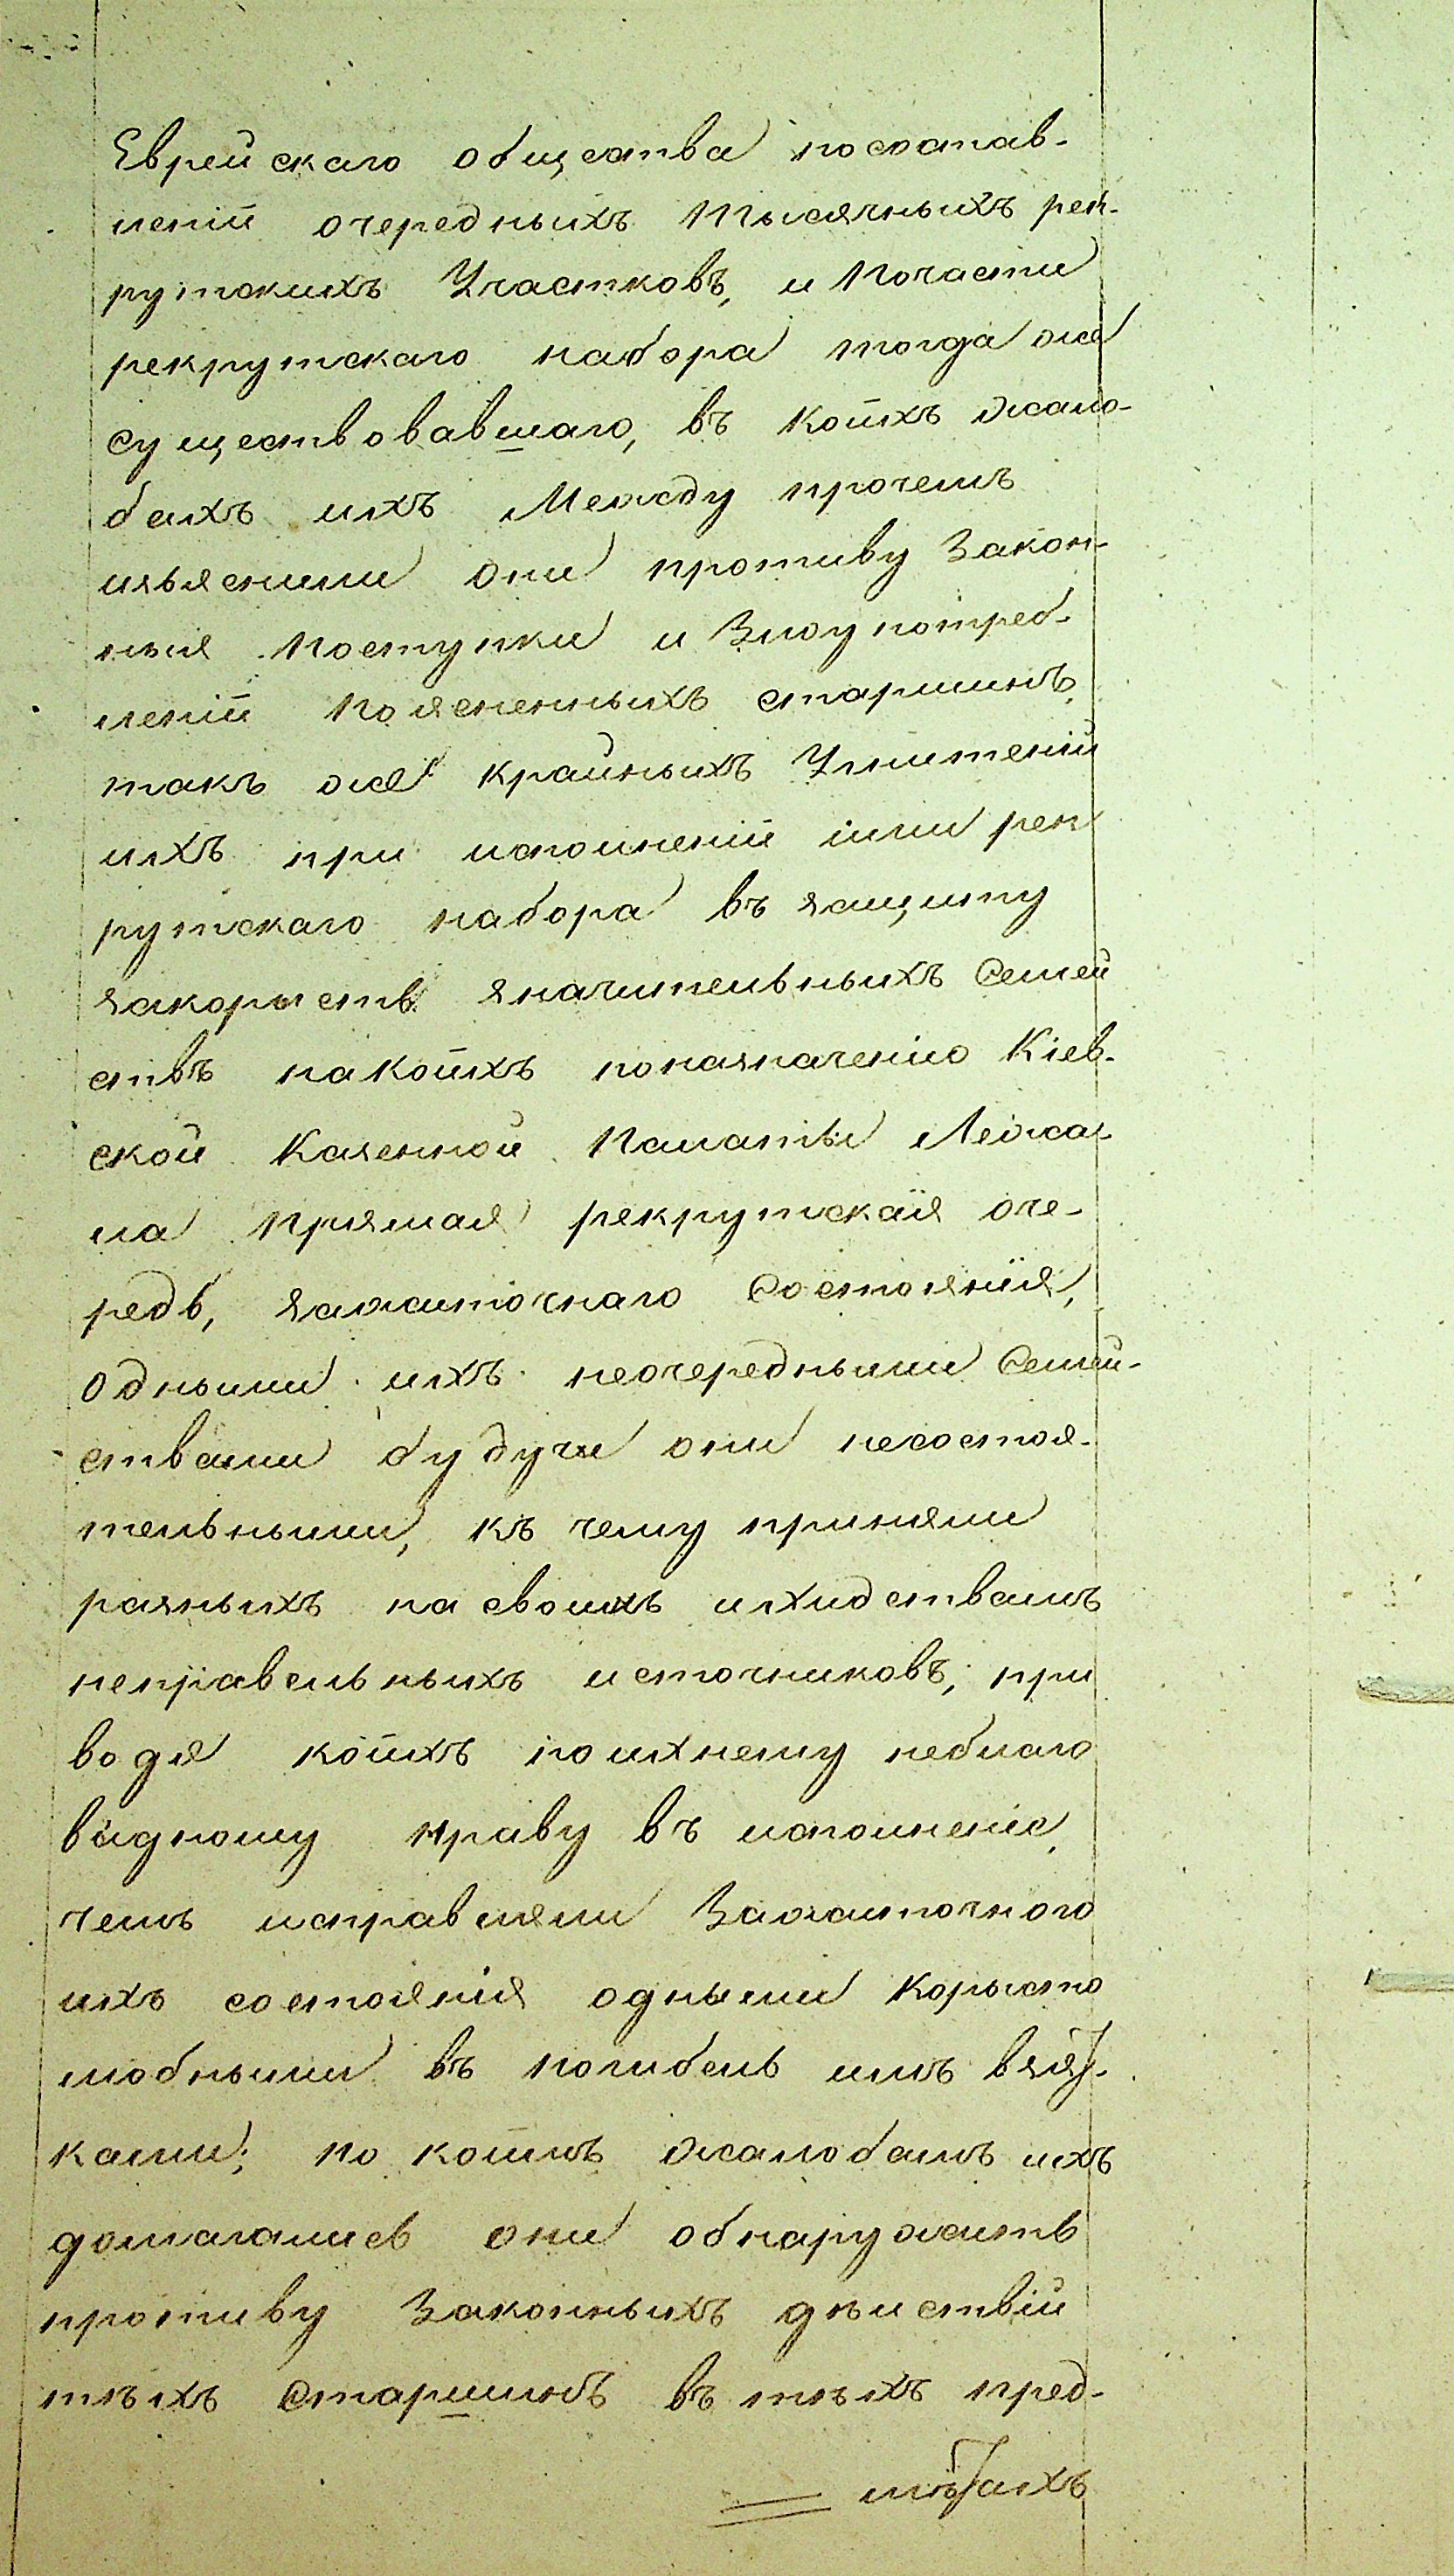 Еврейскаго общества посостав-
леній очередныхъ тысячныхъ рек-
рутскихъ Участковъ, и почасти
рекрутскаго набора тогда же
существовавшаго, въ коихъ жало-
бахъ ихъ Между прочемъ
изъяснили они противу Закон-
ныя поступки и Злоупотреб-
леній поясненныхъ старшинъ,
такъ же крайныхъ Упитеній
ихъ при исполненій ими рек
рутскаго набора въ защиту
закорысть значительныхъ Семей
ствъ на коихъ поназначенію Кіев-
ской Казенной Палаты Лежа-
ла прямая рекрутская оче-
редь, зажиточнаго Состоянія,
одными ихъ неочередными Семей-
ствами будучи они несостоя-
тельными, къ чему приняли
разныхъ по своихъ ихидствамъ
неправельныхъ источниковъ, при
водя коихъ поихнему неблаго
видному нраву въ исполненіе,
чемъ исправляли Зажиточного
ихъ состоянія одными Корысто
любными въ погибель имъ взят-
ками; по коимъ жалобамъ ихъ
домагались они обнаружить
противу Законныхъ дѣиствій
тѣхъ Старшинъ въ тѣхъ пред-
мѣтахъ